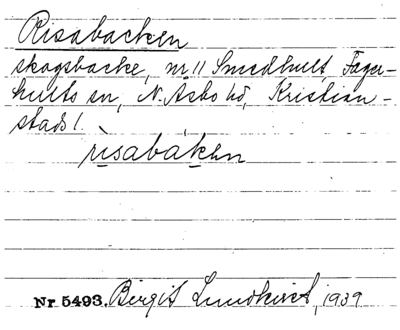 Risabacken
skogsbacke, nr 11 Smedhult, Fager-
hults sn, N. Asbo hd, Kristian-
stads l.
rìsabáken
Nr 5493. Birgit Lundkvist, 1939